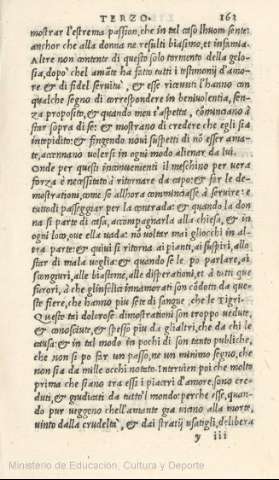 TERZO. 163
mostrar l'estrema passion, che in tal caso l'huom sente:
anchor che alla donna ne resulti biasimo, et infamia.
Altre non contente di questo solo tormento della gelo
sia, dopo che'l amante ha fatto tutti i testimonij d'amo-
re & di fidel servitù, & esse ricevuti l'hanno con
qualche segno di correspondere in benivolentia, sen-
za proposito, & quando men s'aspetta, cominciano à
star sopra di se: & mostrano di credere che egli sia
intepidito: & fingendo novi suspetti di nõ esser ama-
te, accennano volersi in ogni modo alienar da lui.
Onde per questi inconvenienti il meschino per vera
forza è necessitato à ritornare da capo: & far le de-
mostrationi, come se allhora cominciasse à servire: e
tutto dì passeggiar per la contrada: & quando la don
na si parte di casa, accompagnarla alla chiesa, & in
ogni loco, ove ella vada: nõ voltar mai gliocchi in al-
tra parte: & quivi si ritorna ai pianti, ai suspiri, allo
star di mala voglia: & quando se le po parlare, ai
scongiuri, alle biasteme, alle disperationi, et à tutti que
furori, à che gl'infelici innamorati son cõdotti da que-
ste fiere, che hanno piu sete di sangue, che le Tigri.
Queste tai dolorose dimostrationi son troppo vedute,
& conosciute, & spesso piu da glialtri, che da chi le
causa: & in tal modo in pochi dì son tanto publiche,
che non si po far un passo, ne un minimo segno, che
non sia da mille occhi notato. Intervien poi che molto
prima che siano tra essi i piaceri d'amore, sono cre-
duti, & giudicati da tutto'l mondo: perche esse, quan-
do pur veggono che'l amante gia vicino alla morte,
vinto dalla crudeltà, & dai stratij usatigli, delibera
y iii
Ministerio de Educación, Cultura y Deporte